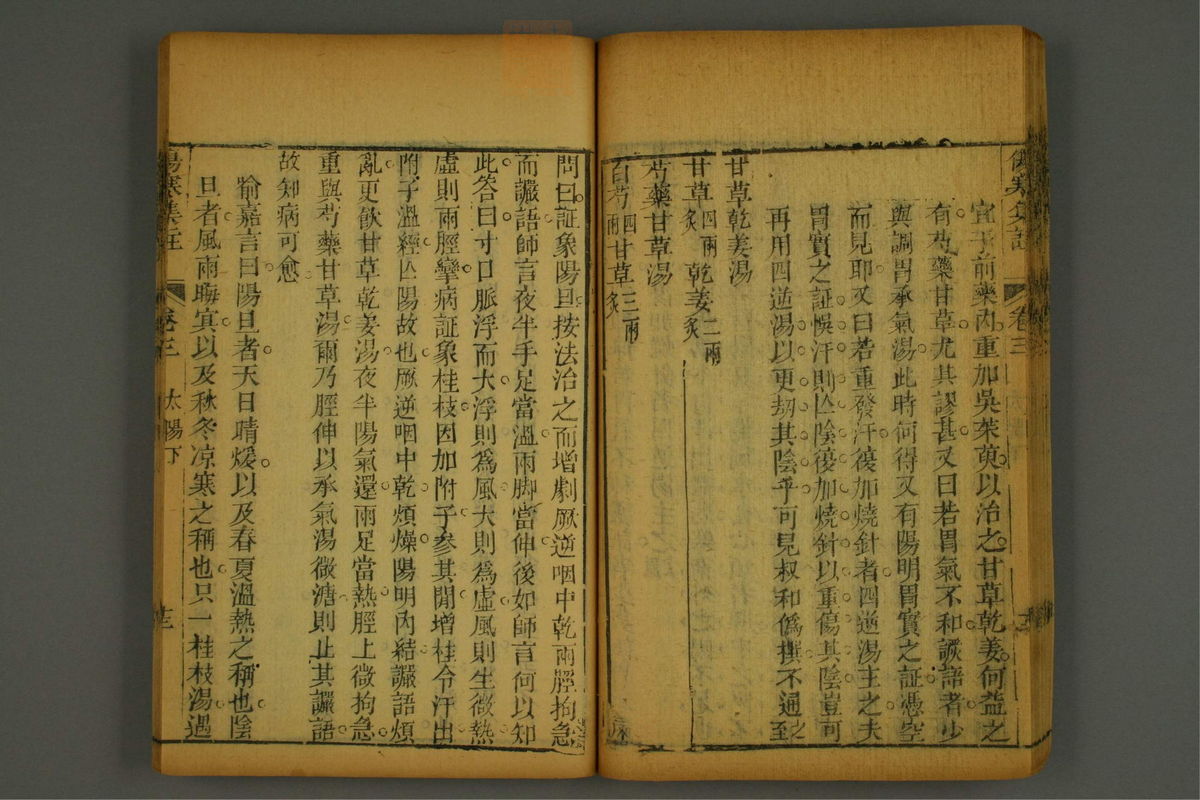 宜于前藥內重加吳茱萸以治之甘草乾姜何益之
有芍藥甘草尤其謬甚又曰若胃氣不和譫語者少
與調胃承氣湯此時何得又有陽明胃實之証憑空
而見耶又曰若重發汗復加燒針者四逆湯主之夫
胃實之証悞汗則亾陰復加燒針以重傷其陰豈可
再用四逆湯以更刼其陰乎可見叔和僞撰不通之至
甘草乾姜湯
甘草四兩炙 乾姜二兩炙
芍藥甘草湯
白芍四兩 甘草三兩炙
傷寒集註 卷三
問曰証象陽旦按法治之而增劇厥逆咽中乾兩脛拘急
而讝語師言夜半手足當溫兩脚當伸後如師言何以知
此答曰寸口脈浮而大浮則爲風大則爲虛風則生微熱
虛則兩脛攣病証象桂枝因加附子參其間增桂令汗出
附子溫經亾陽故也厥逆咽中乾煩燥陽明內結讝語煩
亂更飲甘草乾姜湯夜半陽氣還兩足當熱脛上微拘急
重與芍藥甘草湯爾乃脛伸以承氣湯微溏則止其讝語
故知病可愈
喻嘉言曰陽旦者天日晴煖以及春夏溫熱之稱也陰
旦者風雨晦冥以及秋冬凉寒之稱也只一桂枝湯過
傷寒集註 卷三 太陽下 十三